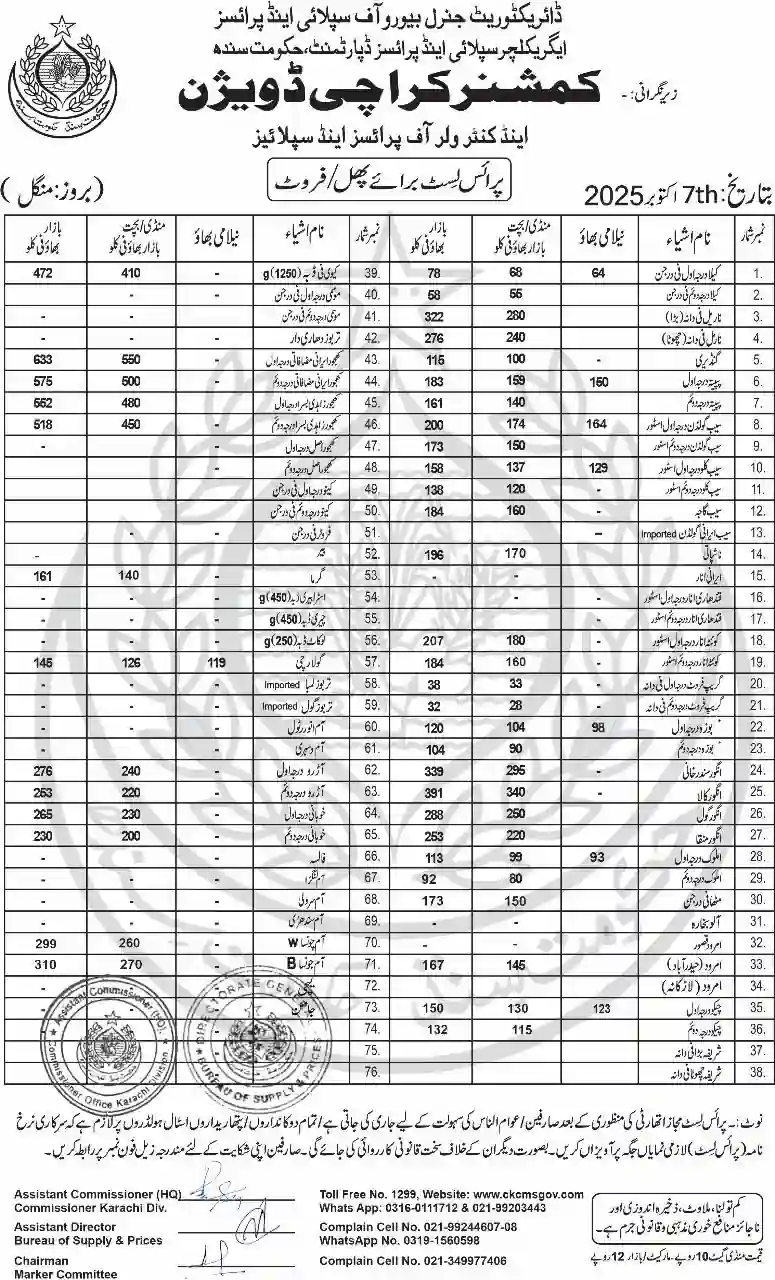 ڈائریکٹوریٹ جنرل بیورو آف سپلائی اینڈ پرائسز
ایگریکلچر سپلائی اینڈ پرائسز ڈپارٹمنٹ، حکومت سندھ
زیرِنگرانی: - کمشنر کراچی ڈویژن
اینڈ کنٹرولر آف پرائسز اینڈ سپلائیز
بتاریخ: 7th اکتوبر 2025 پرائس لسٹ برائے پھل/فروٹ (بروز: منگل)
نمبرشمار نام اشیاء نیلامی بھاؤ منڈی/بچت بازار بھاؤ فی کلو بازار بھاؤ فی کلو
1. کیلا درجہ اول فی درجن 64 68 78
2. کیلا درجہ دوئم فی درجن 55 58
3. ناریل فی دانہ (بڑا) 280 322
4. ناریل فی دانہ (چھوٹا) 240 276
5. گنڈیری - 100 115
6. پپیتہ درجہ اول 150 159 183
7. پپیتہ درجہ دوئم 140 161
8. سیب گولڈن درجہ اول اسٹور 164 174 200
9. سیب گولڈن درجہ دوئم اسٹور 150 173
10. سیب کلو درجہ اول اسٹور 129 137 158
11. سیب کلو درجہ دوئم اسٹور - 120 138
12. سیب گاجہ - 160 184
13. سیب ایرانی گولڈن Imported -
14. ناشپاتی 170 196
15. ایرانی انار - - -
16. قندھاری انار درجہ اول اسٹور - -
17. قندھاری انار درجہ دوئم اسٹور
18. کوئٹہ انار درجہ اول اسٹور - 180 207
19. کوئٹہ انار درجہ دوئم اسٹور - 160 184
20. گریپ فروٹ درجہ اول فی دانہ - 33 38
21. گریپ فروٹ درجہ دوئم فی دانہ - 28 32
22. بوزہ درجہ اول 98 104 120
23. بوزہ درجہ دوئم 90 104
24. انگور سندرخانی - 295 339
25. انگور کالا - 340 391
26. انگور گول 250 288
27. انگور منقا 220 253
28. املوک درجہ اول 93 99 113
29. املوک درجہ دوئم 80 92
30. مٹھا فی درجن 150 173
31. آلو بخارہ
32. امرود قصور - -
33. امرود (حیدرآباد) 145 167
34. امرود (لاڑکانہ)
35. چیکو درجہ اول 123 130 150
36. چیکو درجہ دوئم 115 132
37. شریفہ بڑا فی دانہ
38. شریفہ چھوٹا فی دانہ
نمبرشمار نام اشیاء نیلامی بھاؤ منڈی/بچت بازار بھاؤ فی کلو بازار بھاؤ فی کلو
39. کیوی فی ڈبہ (1250)g - 410 472
40. موسمی درجہ اول فی درجن - - -
41. موسمی درجہ دوئم فی درجن - -
42. تربوز دھاری دار - - -
43. کھجور ایرانی مضافاتی درجہ اول 550 633
44. کھجور ایرانی مضافاتی درجہ دوئم 500 575
45. کھجور زاہدی بسرا درجہ اول 480 552
46. کھجور زاہدی بسرا درجہ دوئم 450 518
47. کھجور اصل درجہ اول - -
48. کھجور اصل درجہ دوئم - -
49. کینو درجہ اول فی درجن
50. کینو درجہ دوئم فی درجن
51. فروٹر فی درجن - -
52. -
53. گرما 140 161
54. اسٹرابیری ڈبہ (450)g - -
55. چیری ڈبہ (450)g - -
56. لوکاٹ ڈبہ (250)g - -
57. گولاچی 119 126 145
58. تربوز لمبا Imported - - -
59. تربوز گول Imported - - -
60. آم انور رٹول - -
61. آم دسہری - -
62. آڑو درجہ اول 240 276
63. آڑو درجہ دوئم 220 253
64. خوبانی درجہ اول 230 265
65. خوبانی درجہ دوئم 200 230
66. فالسہ - - -
67. آم لنگڑا - -
68. آم سرولی - -
69. آم سندھڑی - -
70. آم چونسا W 260 299
71. آم چونسا B 270 310
72. لیچی
73. جامن
74.
75.
76.
Assistant Commissioner (HQ).
Commissioner Office Karachi Division
DIRECTORATE GENERAL
BUREAU OF SUPPLY & PRICES
نوٹ: ۔ پرائس لسٹ مجاز اتھارٹی کی منظوری کے بعد صارفین/عوام الناس کی سہولت کے لیے جاری کی جاتی ہے/تمام دوکانداروں/پتھاریداروں اسٹال ہولڈروں پر لازم ہے کہ سرکاری نرخ
نامہ (پرائس لسٹ) لازمی نمایاں جگہ پر آویزاں کریں۔ بصورت دیگر ان کے خلاف سخت قانونی کارروائی کی جائے گی۔ صارفین اپنی شکایت کے لئے مندرجہ زیل فون نمبر پر رابطہ کریں۔
Assistant Commissioner (HQ)
Commissioner Karachi Div.
Assistant Director
Bureau of Supply & Prices
Chairman
Marker Committee
Toll Free No. 1299, Website: www.ckcmsgov.com
Whats App: 0316-0111712 & 021-99203443
Complain Cell No. 021-99244607-08
WhatsApp No. 0319-1560598
Complain Cell No. 021-349977406
کم تولنا، ملاوٹ، ذخیرہ اندوزی اور
ناجائز منافع خوری مذہبی و قانونی جرم ہے۔
قیمت منڈی گیٹ 10 روپے۔ مارکیٹ/بازار 12 روپے